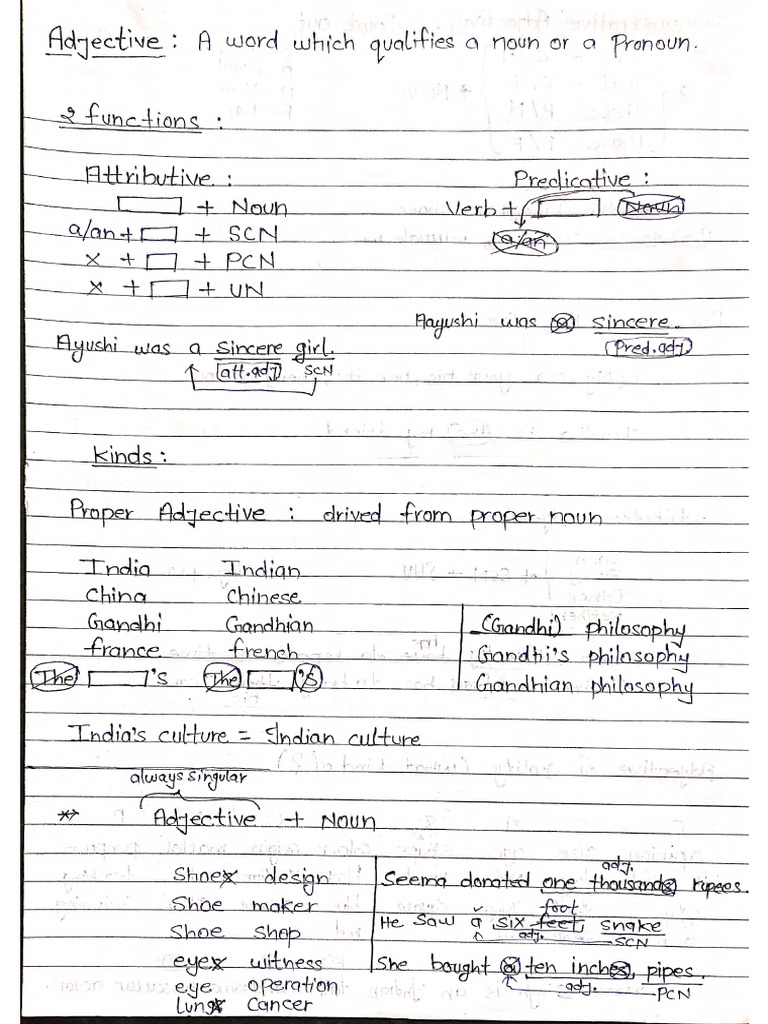 Adjective : A word which qualifies a noun or a Pronoun.
2 functions :
Attributive :
☐ + Noun
a/an + ☐ + SCN
x + ☐ + PCN
x + ☐ + UN
Predicative :
Verb + ☐ Noun
a/an
Ayushi was a sincere girl.
att.adj SCN
Aayushi was a sincere.
Pred.adj
Kinds :
Proper Adjective : drived from proper noun
India Indian
China Chinese
Gandhi Gandhian
france french
The ☐'s The ☐'s
(Gandhi) philosophy
Gandhi's philosophy
Gandhian philosophy
India's culture = Indian culture
always singular
Adjective + Noun
Shoes design
Shoe maker
Shoe shop
eyes witness
eye operation
Lungs Cancer
adj.
Seema donated one thousands rupees.
foot
He saw a six feet snake
adj. SCN
She bought a ten inches pipes.
adj. PCN